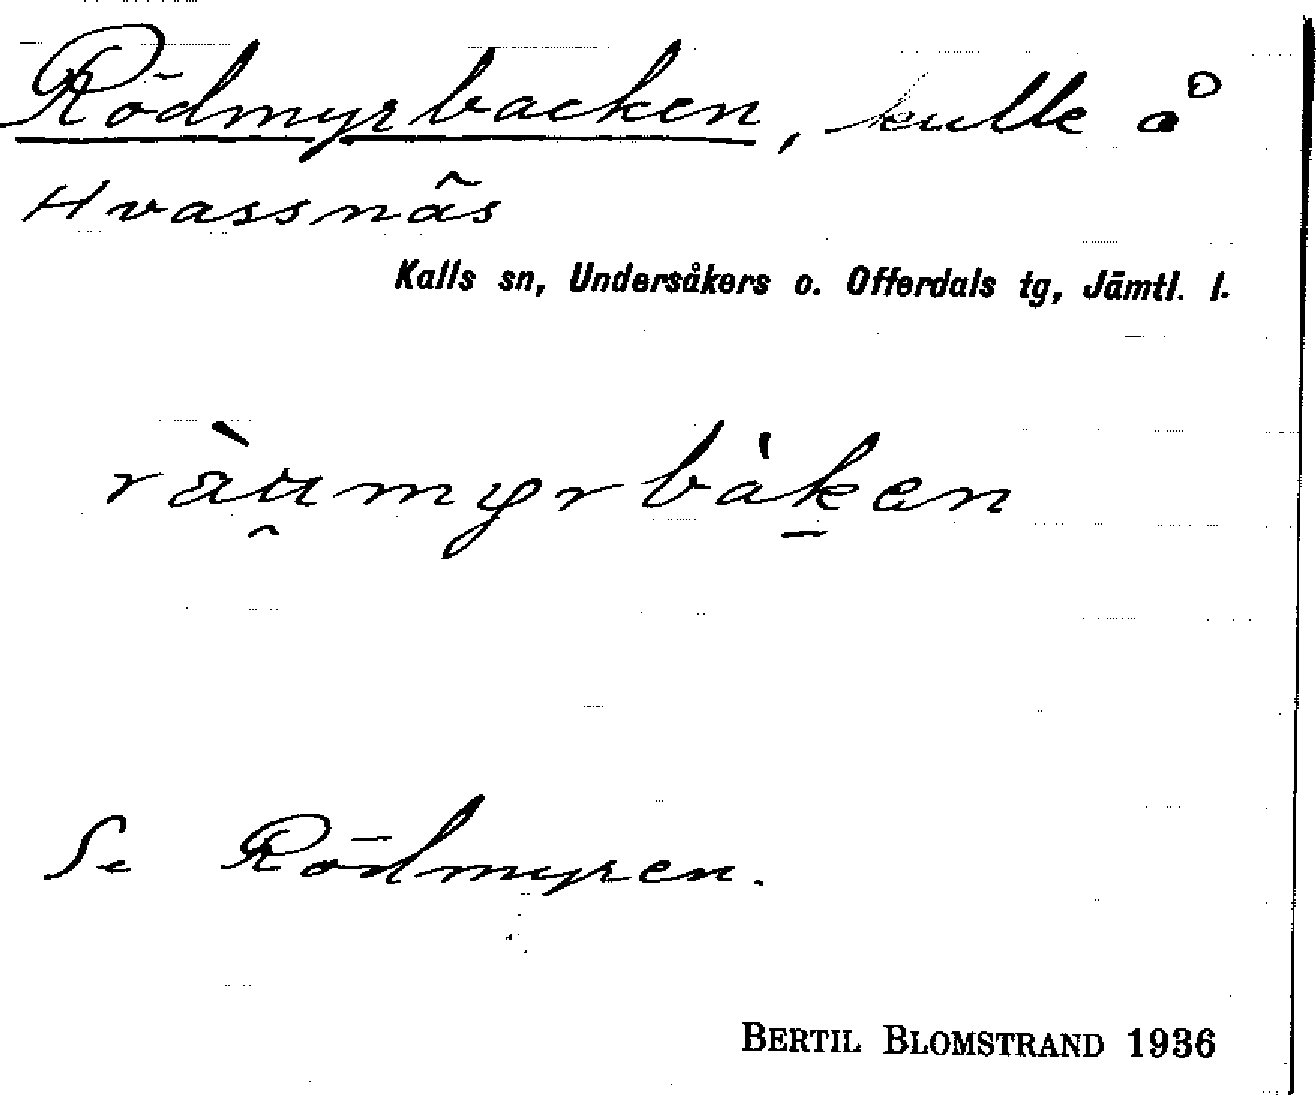 Rödmyrbacken, kulle å
Hvassnäs
Kalls sn, Undersåkers o. Offerdals tg, Jämtl. l.
ràu̯myrbàk̲en
Se Rödmyren.
BERTIL BLOMSTRAND 1936